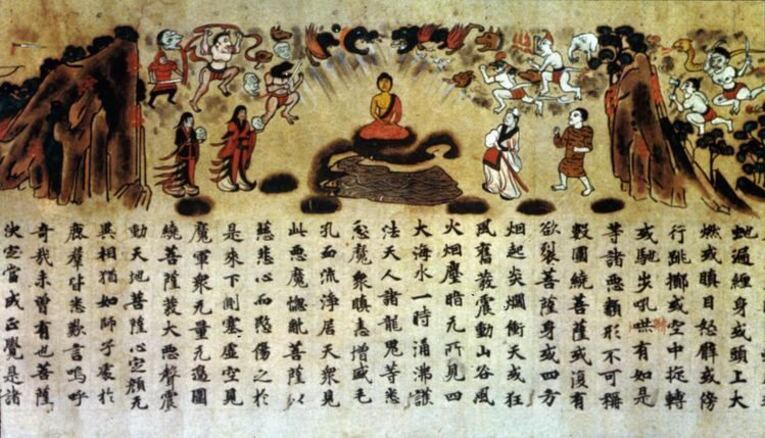 虵遍纏身或頭上火
燃或瞋目努臂或傍
行跳擲或空中旋轉
或馳步吼有如是
等諸惡類形不可稱
數圍繞菩薩或復有
欲裂菩薩身或四方
烟起炎爓衝天或狂
風奮發震動山谷風
火烟塵暗无所見四
大海水一時涌沸護
法天人諸龍鬼等悉
忿魔衆瞋恚增盛毛
孔血流淨居天衆見
此惡魔惱亂菩薩以
慈悲心而愍傷之於
是來下側塞虛空見
魔軍衆无量无邊圍
繞菩薩發大惡聲震
動天地菩薩心定顏无
異相猶如師子處於
鹿群皆悉歎言嗚呼
奇哉未曾有也菩薩
決定當成正覺是諸